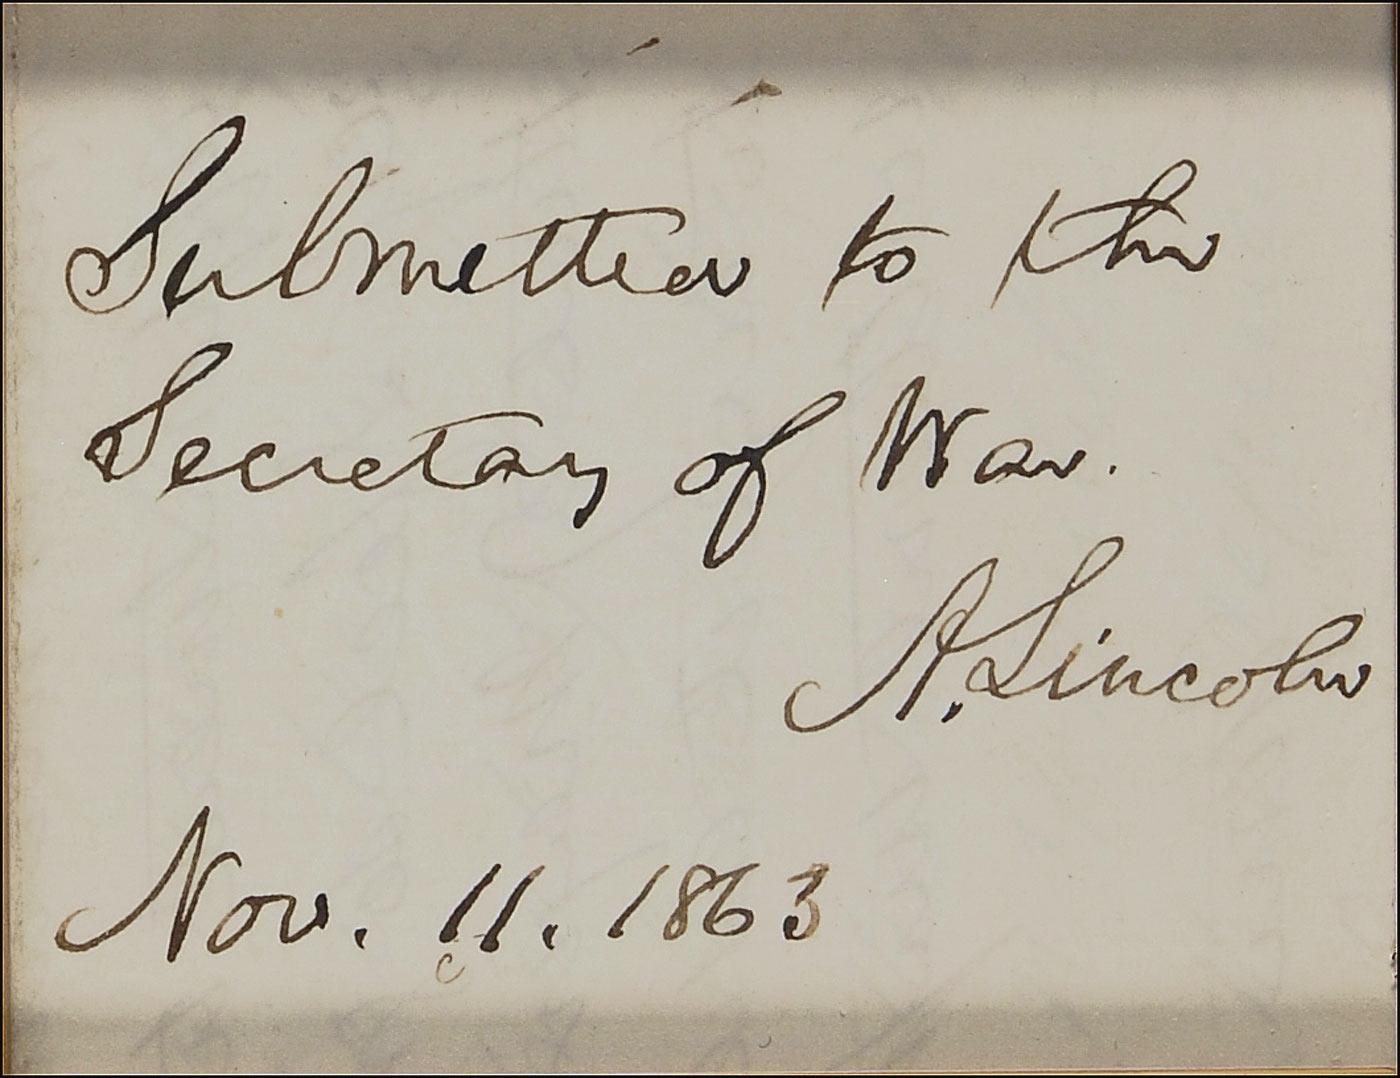 Submitted to the
Secretary of War.
A. Lincoln
Nov. 11. 1863